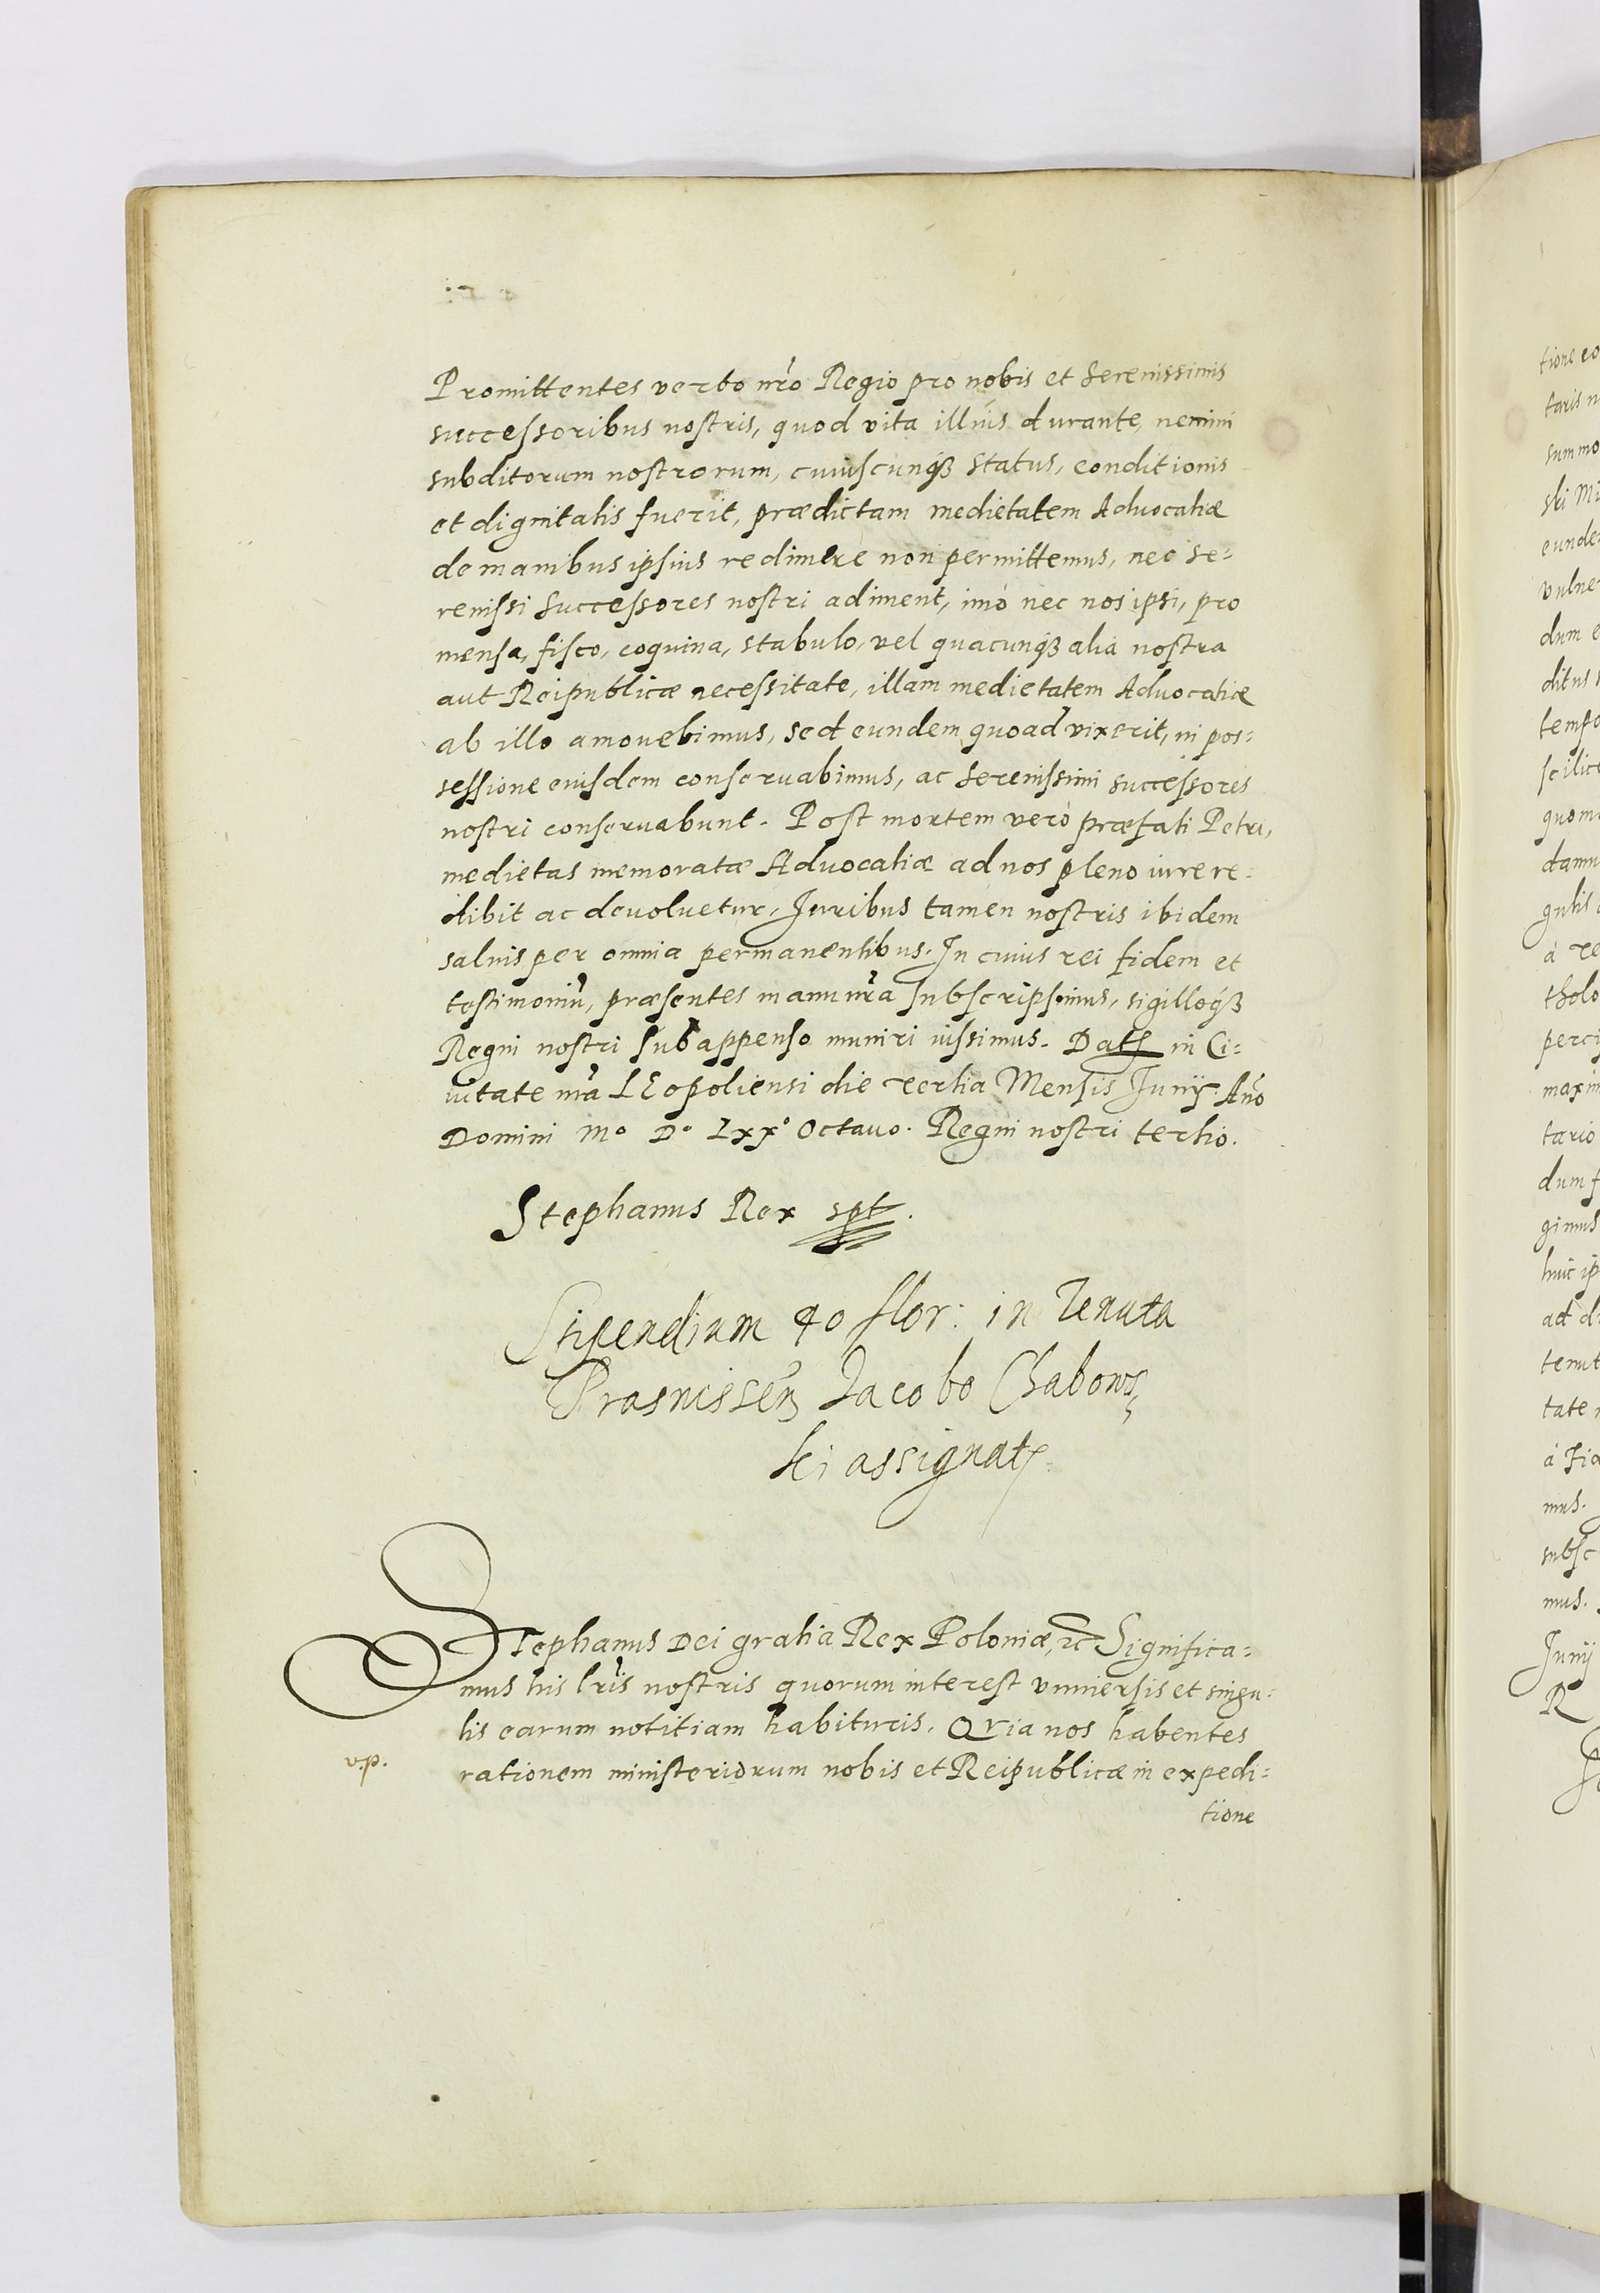 Promittentes verbo nr̃o Regio pro nobis et Serenissimis
successoribus nostris, quod vita illius durante, nemini
subditorum nostrorum, cuiuscunqȝ status, conditionis
et dignitatis fuerit, prædictam medietatem Advocatiæ
de manibus ipsius redimere non permittemus, nec Se-
renissi successores nostri adiment, imò nec nos ipsi, pro
mensa, fisco, coquina, stabulo, vel quacunqȝ alia nostra
aut Reipublicæ necessitate, illam medietatem Advocatiæ
ab illo amovebimus, sed eundem quoad vixerit, in pos-
sessione eiusdem conservabimus, ac Serenissimi successores
nostri conservabunt. Post mortem verò præfati Petri,
medietas memoratæ Advocatiæ ad nos pleno iure re-
dibit ac devolvetur, Juribus tamen nostris ibidem
salvis per omnia permanentibus. In cuius rei fidem et
testimoniũ, præsentes manu nr̃a subscripsimus, sigilloqȝ
Regni nostri subappenso muniri iussimus. Datȝ in Ci-
vitate nr̃a LEopoliensi die tertia Mensis Junij Año
Domini Mº Dº Lxxº Octavo. Regni nostri tertio.
Stephanus Rex spt.
Stipendium 40 flor: in Tenuta
Prasnisseñ Jacobo Chabows-
ki assignatȝ.
Stephanus Dei gratia Rex Poloniæ, ꝛc Significa-
mus his lr̃is nostris quorum interest universis et singu-
lis earum notitiam habituris. Quia nos habentes
v.p.
rationem ministeriorum nobis et Reipublicæ in expedi-
tione
tione eo
taris n
summo
ski Mi
eunde
vulne
dum e
ditus
tempo
scilice
quom
damn
gulis
à re
tholo
perci
maxim
tario
dum f
gimus
huic ip
ad d
tenut
tate
mus.
subsc
mus.
Junij
R